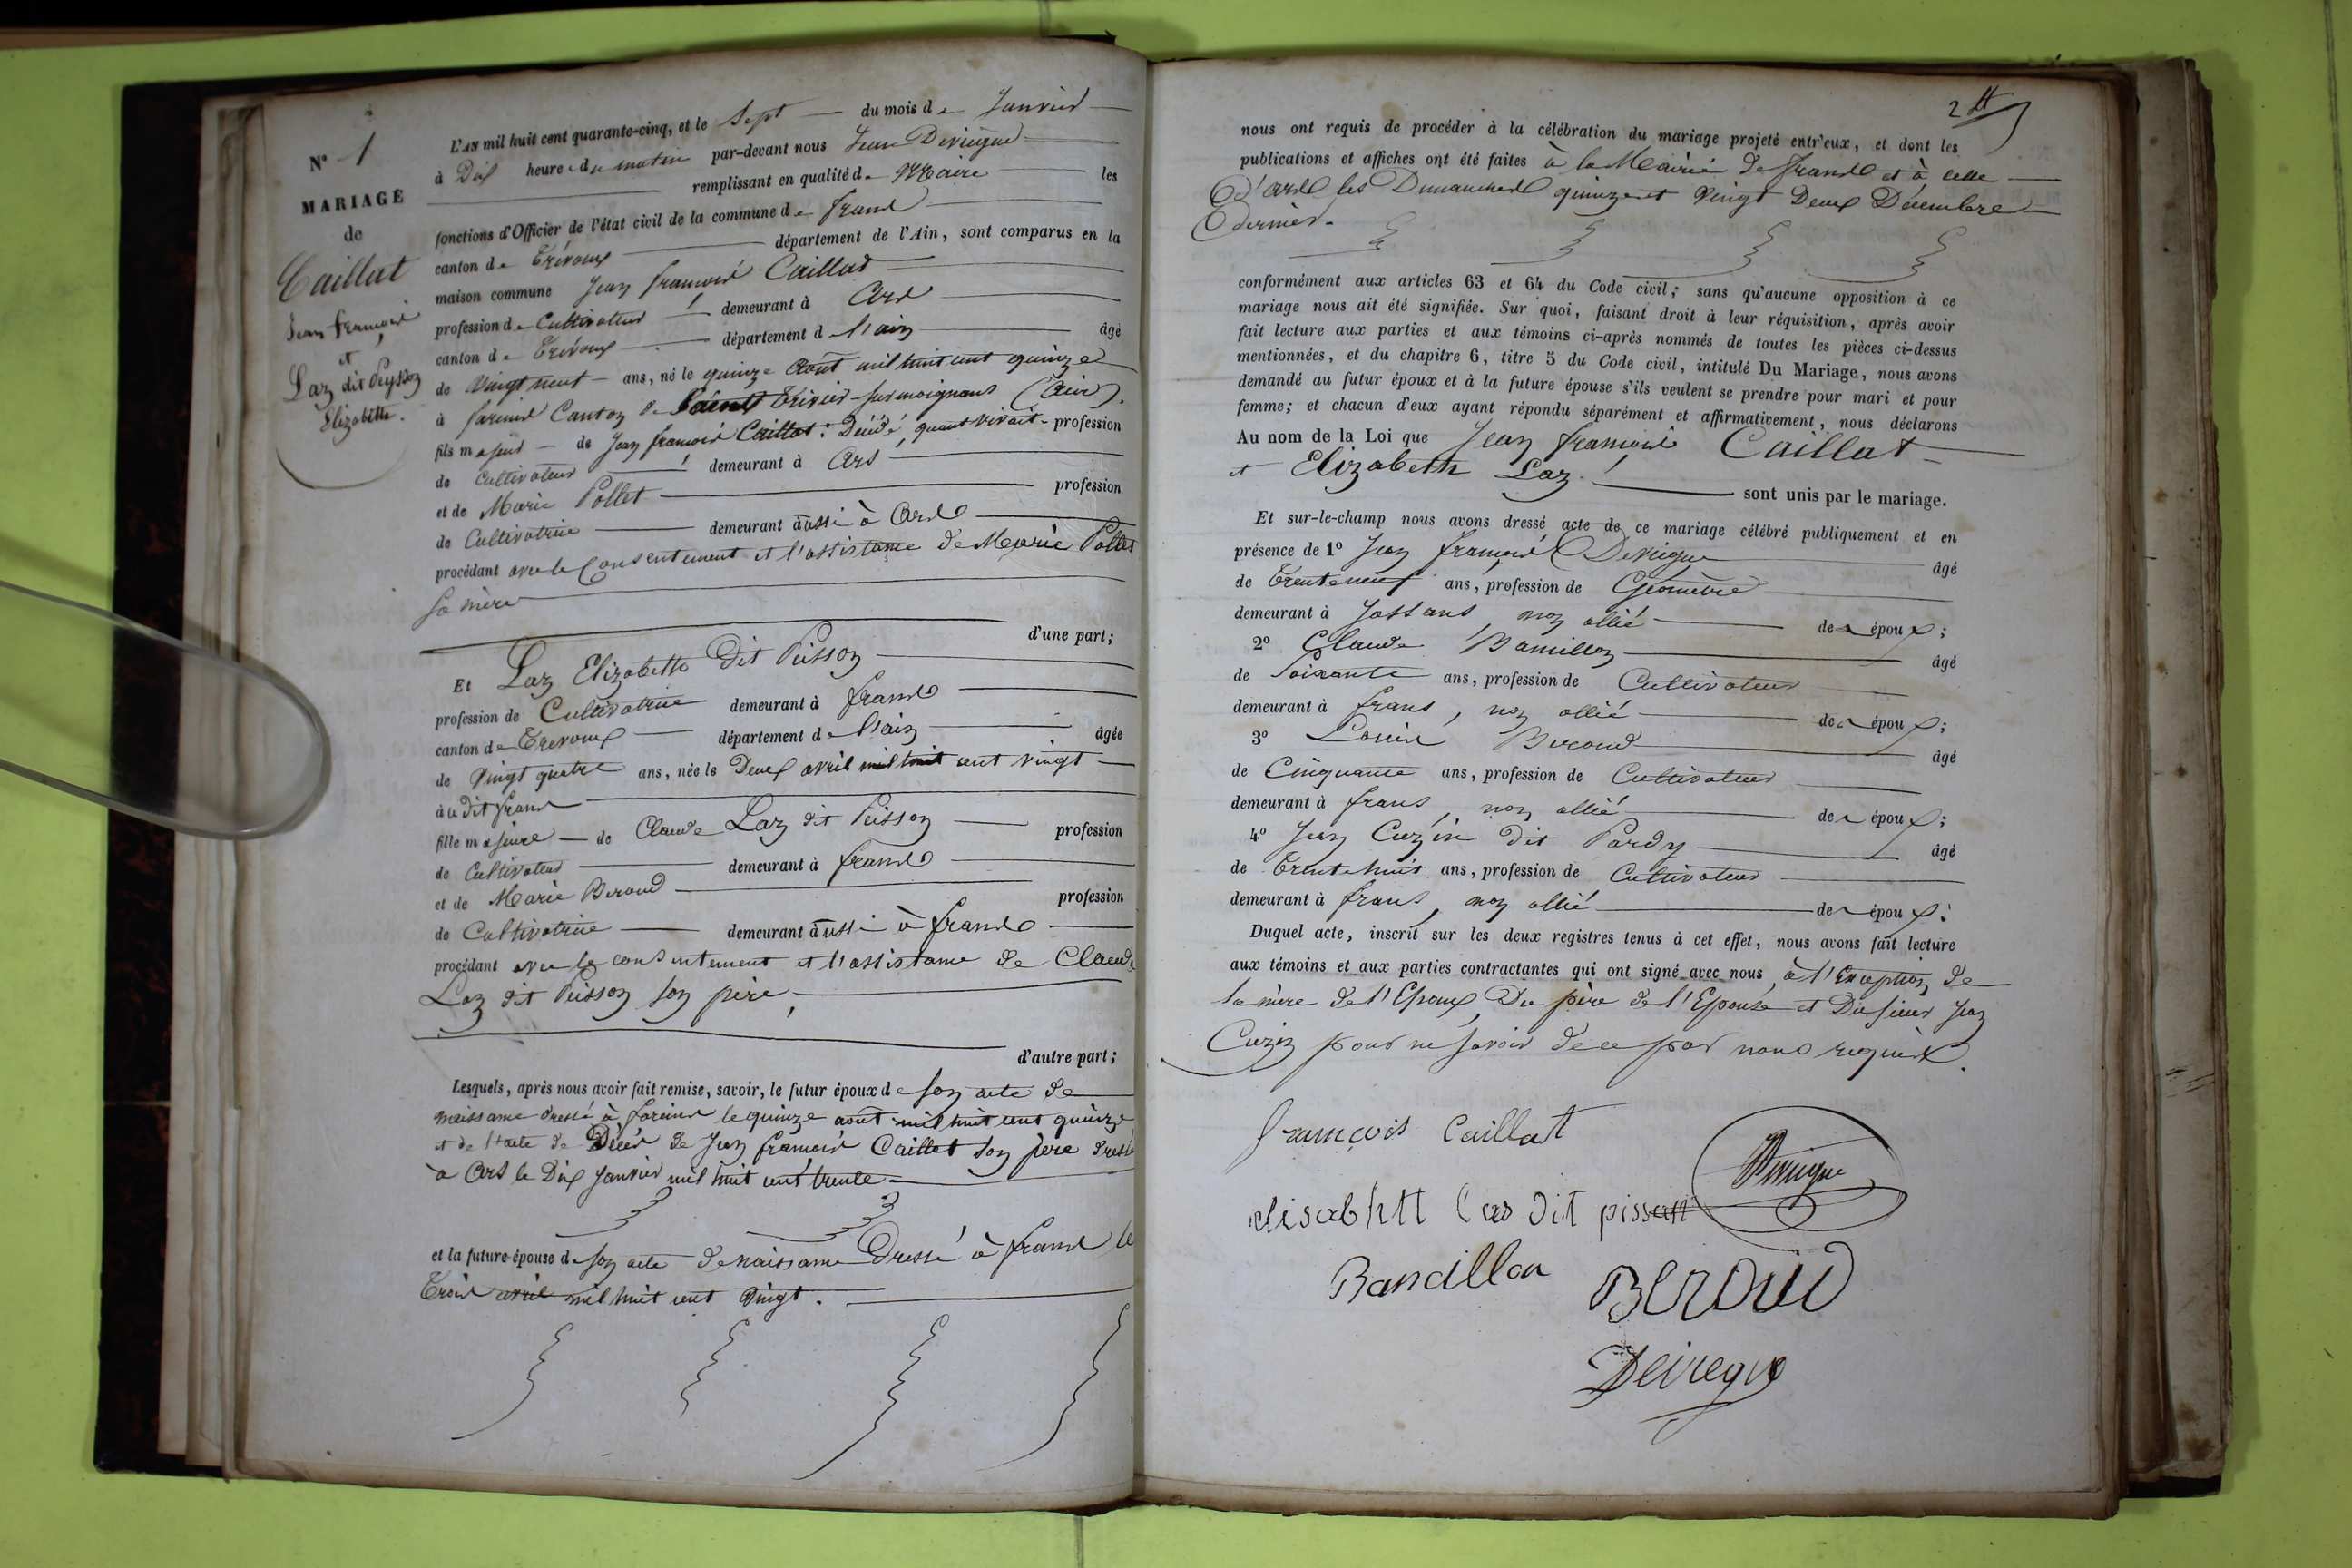 N° 1
MARIAGE
de
Caillat
Jean françois
et
Laz dit Peysson
Elizabeth.
L'AN mil huit cent quarante-cinq, et le Sept du mois de Janvier
à Dix heures du matin par-devant nous Jean
remplissant en qualité de Maire les
fonctions d'Officier de l'état civil de la commune de frans
canton de Trévoux département de l'Ain, sont comparus en la
maison commune Jean françois Caillat
profession de Cultivateur demeurant à Ars
canton de Trévoux département de l'ain âgé
de vingt neuf ans, né le quinze Août mil huit cent quinze
à fareins Canton de Saint Trivier sur moignans (Ain).
fils majeur de Jean françois Caillat : Décédé, quant vivait profession
de Cultivateur demeurant à Ars
et de Marie Pollet profession
de Cultivatrice demeurant aussi à Ars
procédant avec le Consentement et l'assistance de Marie Pollet
sa mère
d'une part;
Et Laz Elizabeth Dit Peisson
profession de Cultivatrice demeurant à frans
canton de Trevoux département de l'ain âgée
de vingt quatre ans, née le Deux avril mil huit cent vingt
audit frans
fille majeure de Claude Laz dit Peisson profession
de Cultivateur demeurant à frans
et de Marie Beroud profession
de Cultivatrice demeurant aussi à frans
procédant avec le consentement et l'assistance de Claude
Laz dit Peisson son père,
d'autre part;
Lesquels, après nous avoir fait remise, savoir, le futur époux de son acte de
naissance dressé à fareins le quinze août mil huit cent quinze
et de l'acte de Décès de Jean françois Caillat son père dressé
à Ars le Dix Janvier mil huit cent trente
et la future épouse de son acte de naissance Dressé à frans le
Trois avril mil huit cent vingt.
2
nous ont requis de procéder à la célébration du mariage projeté entr'eux, et dont les
publications et affiches ont été faites à la Mairie de frans et à celle
d'ars les Dimanches quinze et vingt Deux Décembre
dernier.
conformément aux articles 63 et 64 du Code civil; sans qu'aucune opposition à ce
mariage nous ait été signifiée. Sur quoi, faisant droit à leur réquisition, après avoir
fait lecture aux parties et aux témoins ci-après nommés de toutes les pièces ci-dessus
mentionnées, et du chapitre 6, titre 5 du Code civil, intitulé Du Mariage, nous avons
demandé au futur époux et à la future épouse s'ils veulent se prendre pour mari et pour
femme; et chacun d'eux ayant répondu séparément et affirmativement, nous déclarons
Au nom de la Loi que Jean françois Caillat
et Elizabeth Laz sont unis par le mariage.
Et sur-le-champ nous avons dressé acte de ce mariage célébré publiquement et en
présence de 1° Jean françois âgé
de Trente neuf ans, profession de Géomètre
demeurant à Jassans, non allié des époux;
2° Claude Bamillon âgé
de Soixante ans, profession de Cultivateur
demeurant à frans, non allié des époux;
3° Louis Beroud âgé
de Cinquante ans, profession de Cultivateur
demeurant à frans, non allié des époux;
4° Jean Cuzin dit Pardy âgé
de Trente huit ans, profession de Cultivateur
demeurant à frans, non allié des époux:
Duquel acte, inscrit sur les deux registres tenus à cet effet, nous avons fait lecture
aux témoins et aux parties contractantes qui ont signé avec nous, à l'Exception de
la mère de l'Epoux, Du père de l'Epouse et Du sieur Jean
Cuzin pour ne savoir de ce par nous requis.
françois Caillat
elisabhtt las dit pissan
Bancillon Beroud